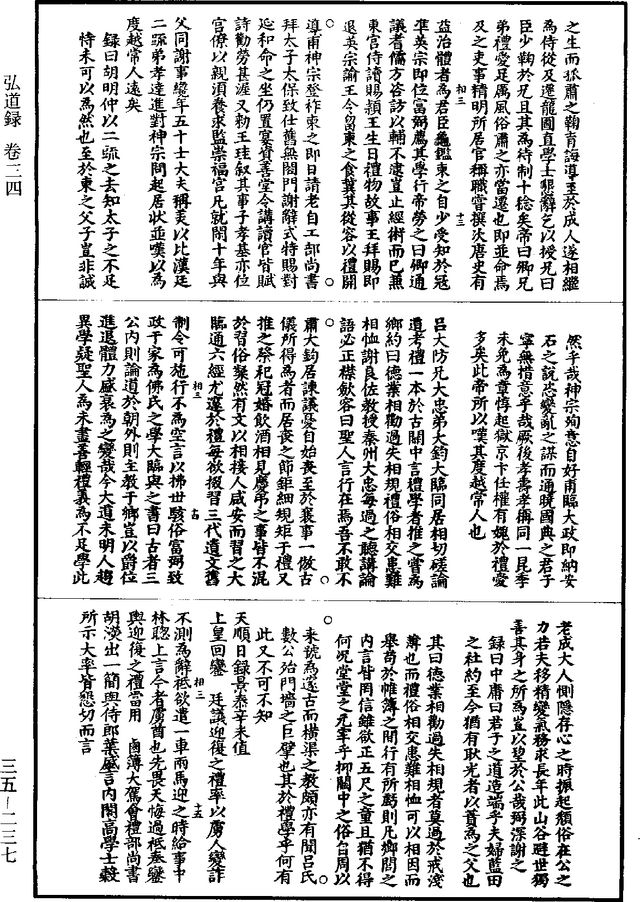 之生而孤肅之鞠育誨導至於成人遂相繼
為侍從及遷龍圖直學士懇辭乞以授兄曰
臣少鞠於兄且其為待制十稔矣帝曰卿兄
弟禮愛足厲風俗肅之亦當遷也即並命焉
及之吏事精明所居官稱職嘗撰次唐史有
相三 十三
益治體者為君臣龜鑑東之自少受知於冠
準英宗即位富弼薦其學行帝勞之曰卿通
議耆儒方咨訪以輔不逮豈止經術而已兼
東宮侍讀賜潁王生日禮物故事王拜賜即
退英宗諭王令留東之食冀其從容以禮開
導甫神宗登祚東之即日請老自工部尚書
拜太子太保致仕舊無閤門謝辭式特賜對
延和命之坐仍置宴資善堂令講讀官皆賦
詩勸勞甚渥又勑王珪叙其事子孝基亦位
宮僚以親須養求監崇福宮凡就閒十年與
父同謝事纔年五十士大夫稱美以比漢廷
二疏弟孝達進對神宗問起居狀並嘆以為
度越常人遠矣
錄曰胡明仲以二疏之去知太子之不足
恃未可以為然也至於東之父子豈非誠
然乎哉神宗殉意自好甫臨大政即納安
石之說恣變亂之謀而通曉國典之君子
寧無措意乎哉厥後孝壽孝稱同一昆季
未免為章惇起獄京卞任權有媿於禮愛
多矣此帝所以嘆其度越常人也
呂大防兄大忠弟大鈞大臨同居相切磋論
遺考禮一本於古關中言禮學者推之嘗為
鄉約曰德業相勸過失相規禮俗相交患難
相恤謝良佐教授秦州大忠每過之聽講論
語必正襟斂容曰聖人言行在焉吾不敢不
肅大鈞居諫議憂自始喪至於襄事一倣古
儀所得為者而居喪之節鉅細規矩于禮又
推之祭祀冠婚飲酒相見慶弔之事皆不混
於習俗粲然有文以相接人咸安而習之大
臨通六經尤邃於禮每欲掇習三代遺文舊
相三
制令可施行不為空言以拂世駭俗富弼致
政于家為佛氏之學大臨與之書曰古者三
公內則論道於朝外則主教于鄉豈以爵位
進退體力盛衰為之變哉今大道未明人趨
異學疑聖人為未盡善輕禮義為不足學此
老成大人惻隱存心之時振起頹俗在公之
力若夫移精變氣務求長年此山谷避世獨
善其身之所為豈以望於公哉弼深謝之
錄曰中庸曰君子之道造端乎夫婦藍田
之社約至今猶有耿光者以首為之父也
其曰德業相勸過失相規者莫過於戒淺
薄也而禮俗相交患難相恤可以相因而
舉苟於帷簿之間行有所虧則凡鄉閭之
內言皆罔信雖欲正五尺之童且猶不得
何況堂堂之元宰乎抑關中之俗自周以
來號為邃古而橫渠之教頗亦有聞呂氏
數公殆門墻之巨擘也其於禮學乎何有
此又不可不知
天順日錄景泰辛未值
上皇回鑾 廷議迎復之禮率以虜人變詐
相三 十五
不測為解祗欲遣一車兩馬迎之時給事中
林聰上言今者虜酋也先畏天悔過祗奉鑾
輿迎復之禮當用 鹵簿大駕會禮部尚書
胡濙出一簡與侍郎葉盛言內閣高學士穀
所示大率皆懇切而言
弘道録 卷三四
三五—二三七